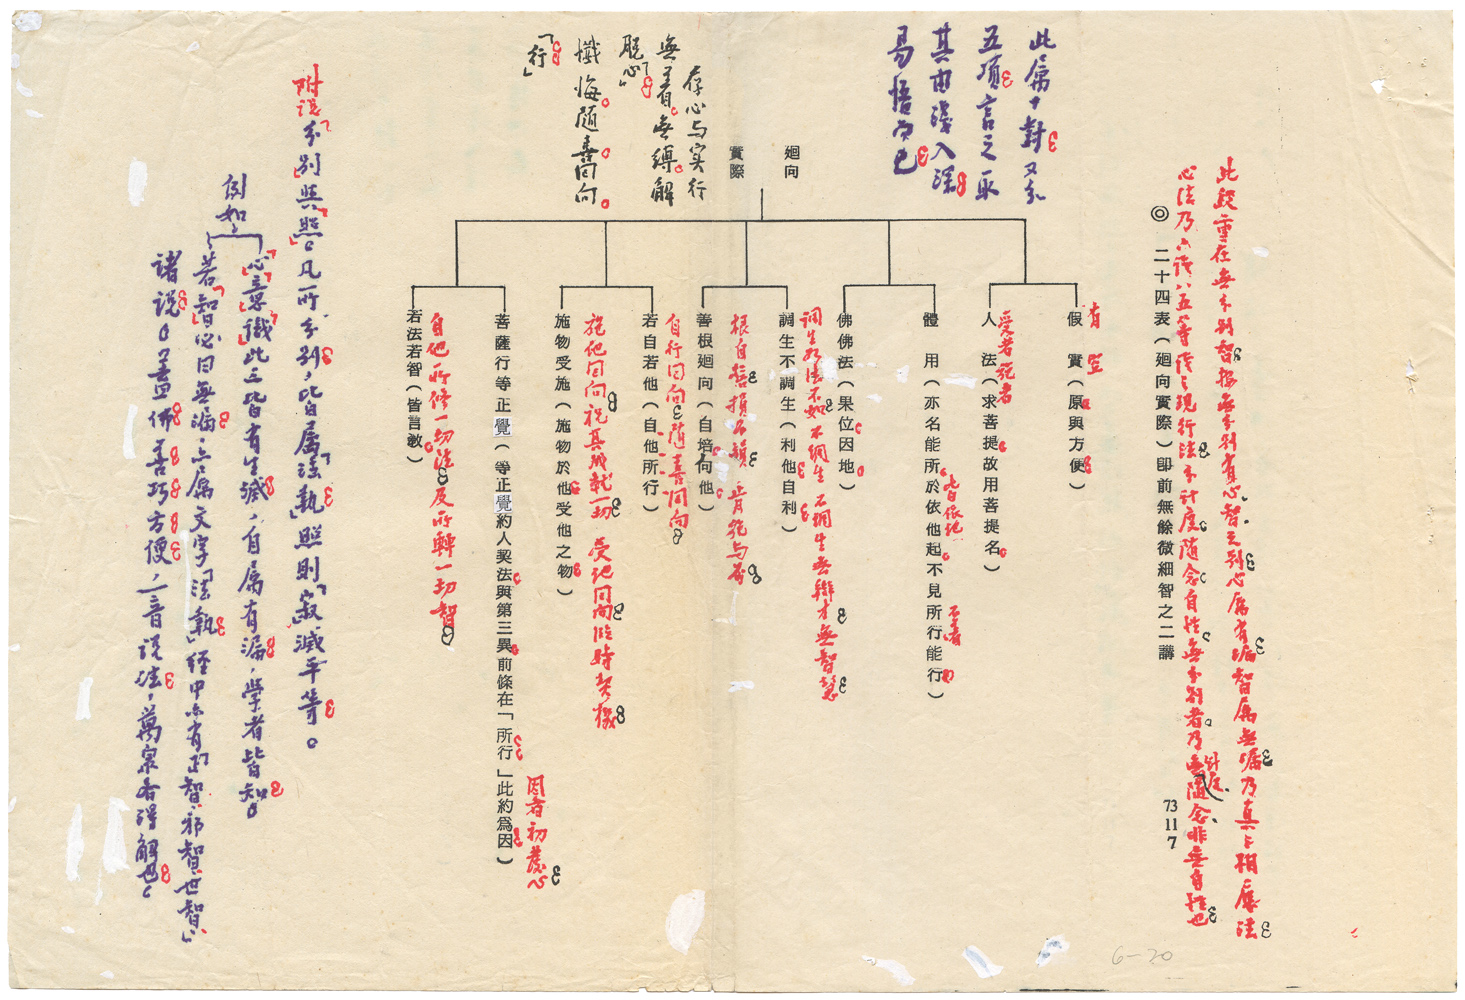 此段重在無分別智按無分別有心智之別心屬有漏智屬無漏乃真
心法乃八識
隨念自性無分別者乃無隨念非無自性也
◎ 二十四表（廻向實際）卽前無餘微細智之二講
73
11
7
此屬十對又分
五項言之取
其由淺入深
易悟而已
廻向
實際
存心与实行
無著。無縛解
脫「心」
懺悔。隨喜。回向。
「行」
有 空
假 實（原與方便）
受者 施者
人 法（求菩提故用菩提名）
體 用（亦名能所於依他起不見所行能行）
皆依他
不著
佛佛法（果位因地）
調生不調生（利他自利）
善根廻向（自培向他）
自行回向隨喜回向
若自若他（自他所行）
施他回向祝其成就一切 受施回向臨時契機
施物受施（施物於他受他之物）
因者初發心
菩薩行等正覺（等正覺約人契法與第三異前條在「所行」此約爲因）
自他所修一切法及所轉一切智
若法若智（皆言教）
附說「分別與「照」。凡所分別，皆屬「法執」照則「寂滅平等。
例如
「心「意「識」此三皆有生滅，自屬有漏，學者皆知。
若「智」必曰無漏，亦屬文字「法執」經中亦有正智、邪智、世智」
諸說。蓋佛善巧方便，一音說法，萬眾各得解也。
6-20